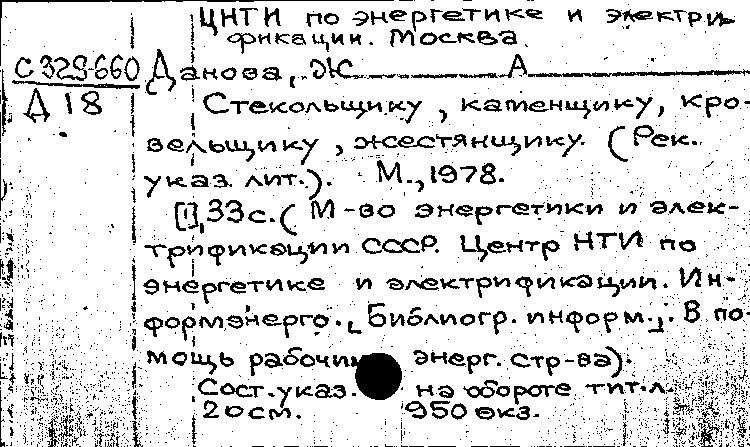 ЦНТИ по энергетике и электри-
фикации. Москва
С 329-660 Данова, Ж А
Д 18 Стекольщику, каменщику, кро-
вельщику, жестянщику. (Рек.
указ. лит.). М., 1978.
[1], 33 с. (М-во энергетики и элек-
трификации СССР. Центр НТИ по
энергетике и электрификации. Ин-
формэнерго. [Библиогр. информ.]. В по-
мощь рабочим энерг. стр-ва).
Сост. указ. на обороте тит. л.
20 см. 950 экз.